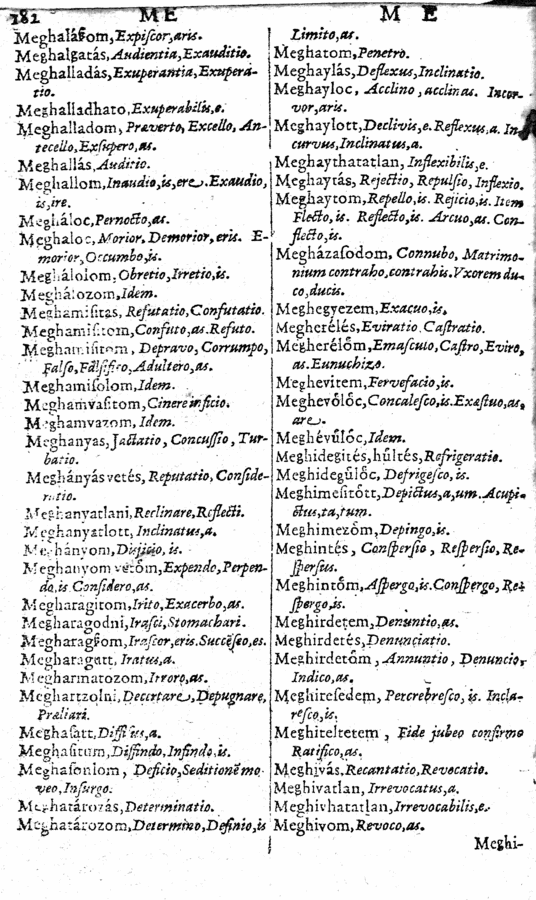 182 ME M E
Meghaláſſom, Expiſcor, aris.
Meghalgatás, Audientia, Exauditio.
Meghalladás, Exuperantia, Exupera-
tio.
Meghalladhato, Exuperabilis, e.
Meghalladom, Præverto, Excello, An-
tecello, Exſupero, as.
Meghallás, Auditio.
Meghallom, Inaudio, is, ere. Exaudio,
is, ire.
Megháloc, Pernocto, as.
Meghaloc, Morior, Demorior, eris. E-
morior, Occumbo, is.
Meghálolom, Obretio, Irretio, is.
Meghálozom, Idem.
Meghamiſitas, Refutatio, Confutatio.
Meghamiſitom, Confuto, as. Refuto.
Meghamiſitom, Depravo, Corrumpo,
Falſo, Falſifico, Adultero, as.
Meghamiſolom, Idem.
Meghamvaſitom, Cinere inficio.
Meghamvazom, Idem.
Meghanyas, Jactatio, Concuſſio, Tur-
batio.
Meghányás vetés, Reputatio, Conſide-
ratio.
Meghanyatlani, Reclinare, Reflecti.
Meghanyatlott, Inclinatus, a.
Meghányom, Disjicio, is.
Meghanyom vetöm, Expendo, Perpen-
do, is. Conſidero, as.
Megharagitom, Irito, Exacerbo, as.
Megharagodni, Iraſci, Stomachari.
Megharagſſom, Iraſcor, eris. Succēſeo, es.
Megharagutt, Iratus, a.
Megharmatozom, Irroro, as.
Meghartzolni, Decertare, Depugnare,
Præliari.
Meghaſatt, Diſſiſus, a.
Meghaſitum, Diffindo, Infindo, is.
Meghaſonlom, Deficio, Seditionē mo-
veo, Inſurgo.
Meghatározás, Determinatio.
Meghatározom, Determino, Definio, is
Limito, as.
Meghatom, Penetro.
Meghaylás, Deflexus, Inclinatio.
Meghayloc, Acclino, acclinas. Incur-
vor, aris.
Meghaylott, Declivis, e. Reflexus, a. In-
curvus, Inclinatus, a.
Meghaythatatlan, Inflexibilis, e.
Meghaytás, Rejectio, Repulſio, Inflexio.
Meghaytom, Repello, is. Rejicio, is. Item
Flecto, is. Reflecto, is. Arcuo, as. Con-
flecto, is.
Megházaſodom, Connubo, Matrimo-
nium contraho, contrahis. Vxorem du-
co, ducis.
Meghegyezem, Exacuo, is.
Megherélés, Eviratio. Caſtratio.
Megherélőm, Emaſculo, Caſtro, Eviro,
as. Eunuchizo.
Meghevitem, Fervefacio, is.
Meghevőlőc, Concaleſco, is. Exæſtuo, as,
are.
Meghévűlőc, Idem.
Meghidegités, hűltés, Refrigeratio.
Meghidegűlőc, Defrigeſco, is.
Meghimeſitőtt, Depictus, a, um. Acupi-
ctus, ta, tum.
Meghimezőm, Depingo, is.
Meghintés, Conſperſio, Reſperſio, Re-
ſperſus.
Meghintőm, Aſpergo, is. Conſpergo, Re-
ſpergo, is.
Meghirdetem, Denuntio, as.
Meghirdetés, Denunciatio.
Meghirdetőm, Annuntio, Denuncio,
Indico, as.
Meghireſedem, Percrebreſco, is. Incla-
reſco, is.
Meghiteltetem, Fide jubeo confirmo
Ratifico, as.
Meghivás, Recantatio, Revocatio.
Meghivatlan, Irrevocatus, a.
Meghivhatatlan, Irrevocabilis, e.
Meghivom, Revoco, as.
Meghi-